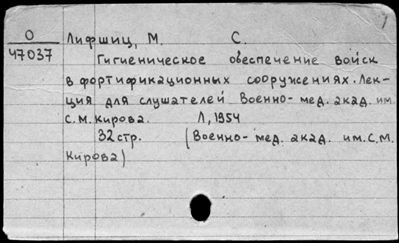 О Лифшиц, М. С.
47037 Гигиеническое обеспечение войск
в фортификационных сооружениях. Лек-
ция для слушателей Военно-мед. акад. им.
С.М. Кирова. Л, 1954
32 стр. (Военно-мед. акад. им. С.М.
Кирова)